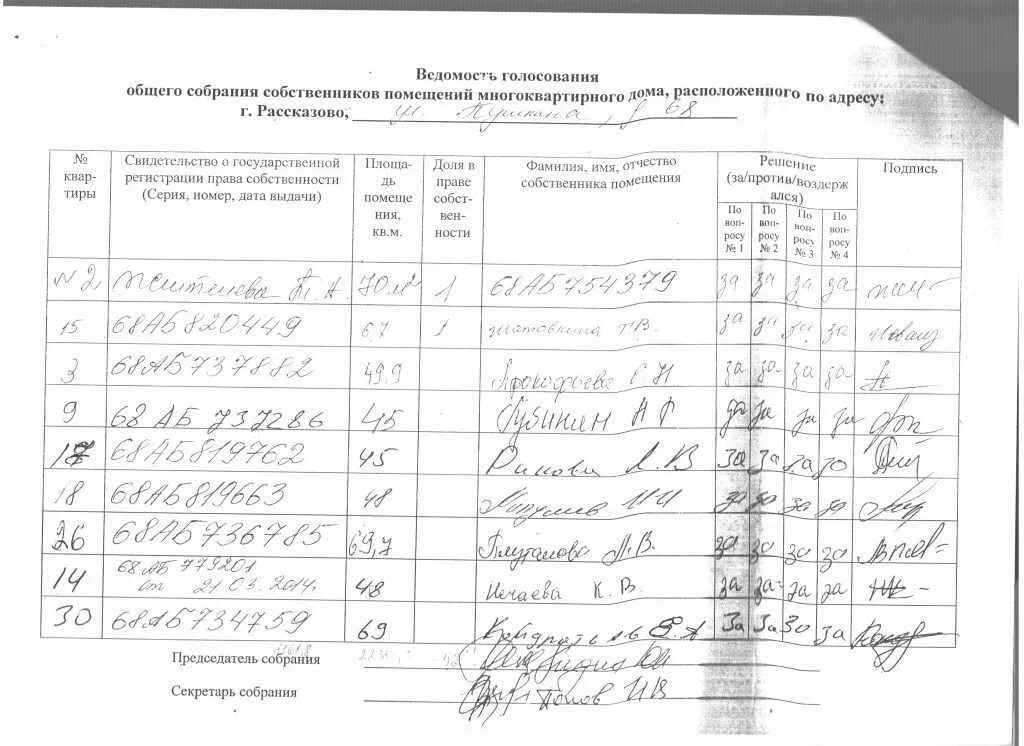 Ведомость голосования
общего собрания собственников помещений многоквартирного дома, расположенного по адресу:
г. Рассказово, ул. Пушкина, д 68
№ квар- тиры
Свидетельство о государственной регистрации права собственности (Серия, номер, дата выдачи)
Площа- дь помеще ния, кв.м.
Доля в праве собст- вен- ности
Фамилия, имя, отчество собственника помещения
Решение (за/против/воздерж ался)
По воп- росу № 1
По воп- росу № 2
По воп- росу № 3
По воп- росу № 4
Подпись
№ 2 Жителева Т. А. 70 м² 1 68АБ754379 за за за за
15 68АБ820449 67 1 Т.В. за за за за
3 68АБ737882 49,9 Прокофьева С Н за за за за
9 68 АБ 737286 45 Губинин А Г за за за за
17 68АБ819762 45 Л.В за за за за
18 68АБ819663 48 за за за за
26 68АБ736785 69,7 Плутанова Л.В. за за за за
14 68 АБ 779201 от 21 03.2014г 48 Нечаева К. В. за за за за
30 68АБ734759 69 за за за за
Председатель собрания
Секретарь собрания Попов